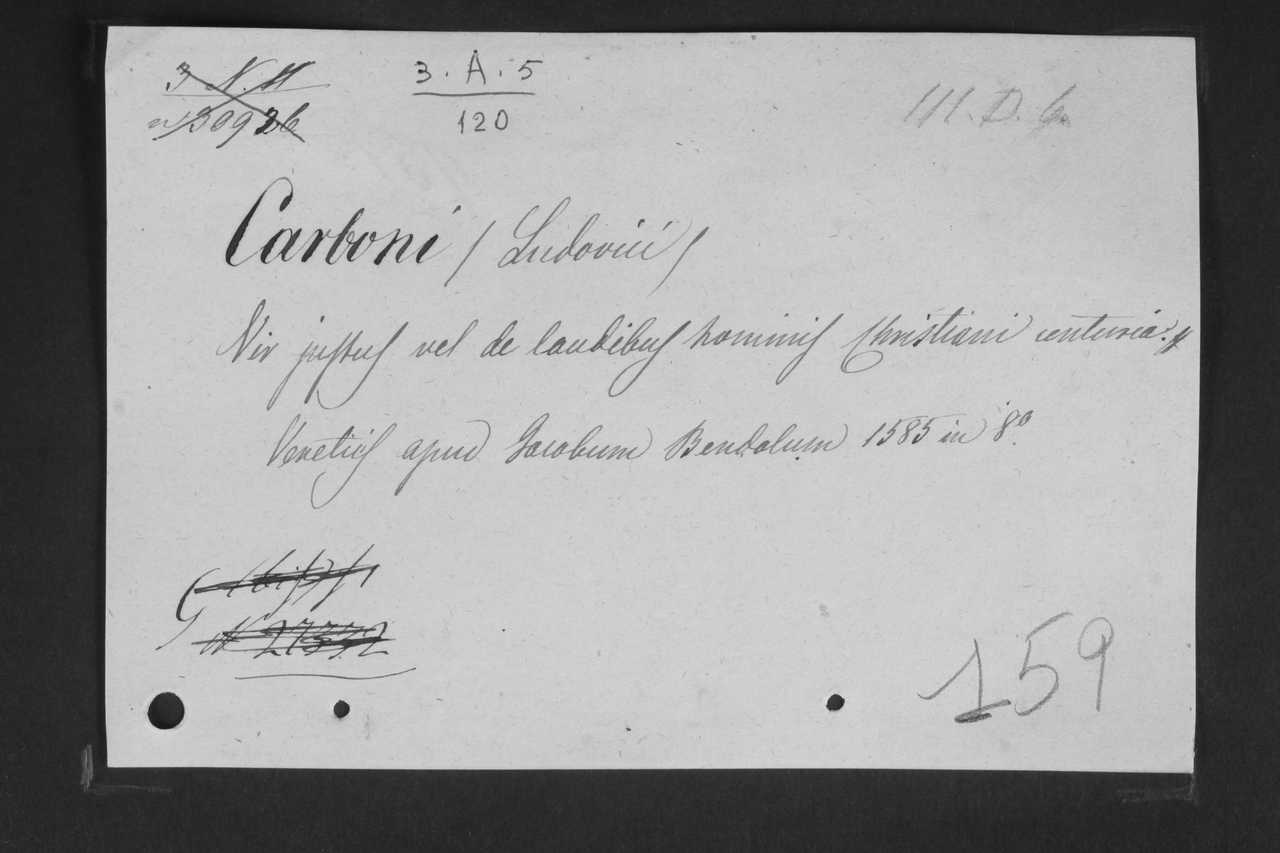 3 N. H
3 . A . 5
n° 30926
120
III. D. 6.
Carboni (Ludovici)
Vir justus vel de laudibus hominis christiani centuria.
Venetiis apud Jacobum Bendolum 1585 in 8°.
N° 27332
159